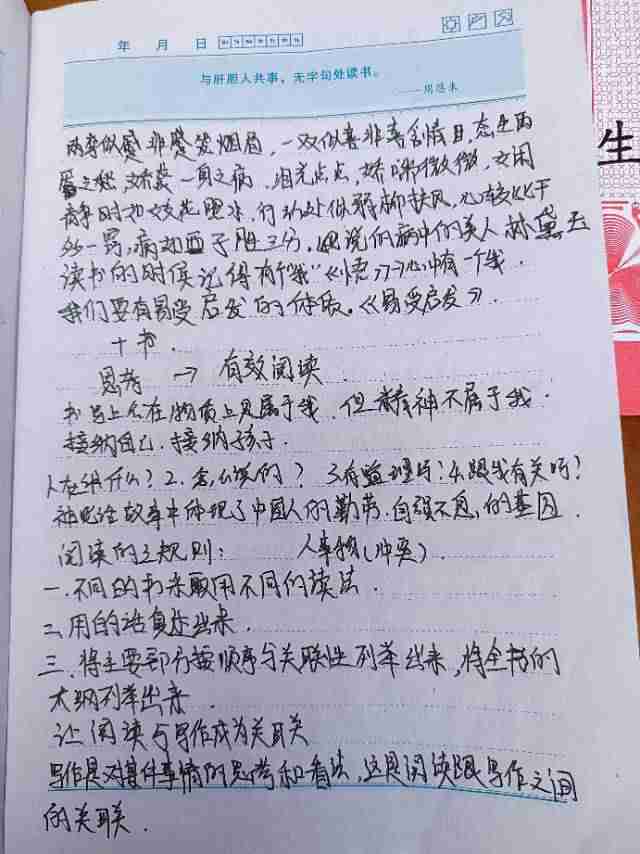 年 月 日
与肝胆人共事，无字句处读书。
——周恩来
两弯似蹙非蹙笼烟眉，一双似喜非喜含情目，态生两
靥之愁，娇袭一身之病，泪光点点，娇喘微微，文闲
静时如姣花照水，行动处似弱柳扶风，心较比干
多一窍，病如西子胜三分。 病中的美人 林黛玉
读书的时候记得有个"我"《悟》心中有一个我。
我们要有易受启发的体质。《易受启发》。
十书.
思考 → 有效阅读
书 在物质上是属于我，但精神不属于我.
接纳自己. 接纳孩子.
1.在 什么? 2. 怎么说的? 3.有道理吗? 4.跟我有关吗?
神 故事中体现了中国人的勤劳.自强不息,的基因.
阅读的三规则: 人事物(冲突).
一.不同的书采取用不同的读法.
二.用 的话复述出来.
三.将主要部分按顺序与关联性列举出来,将全书的
大纲列举出来.
让阅读与写作成为关联
写作是对某件事情的思考和看法,这是阅读跟写作之间
的关联.
生